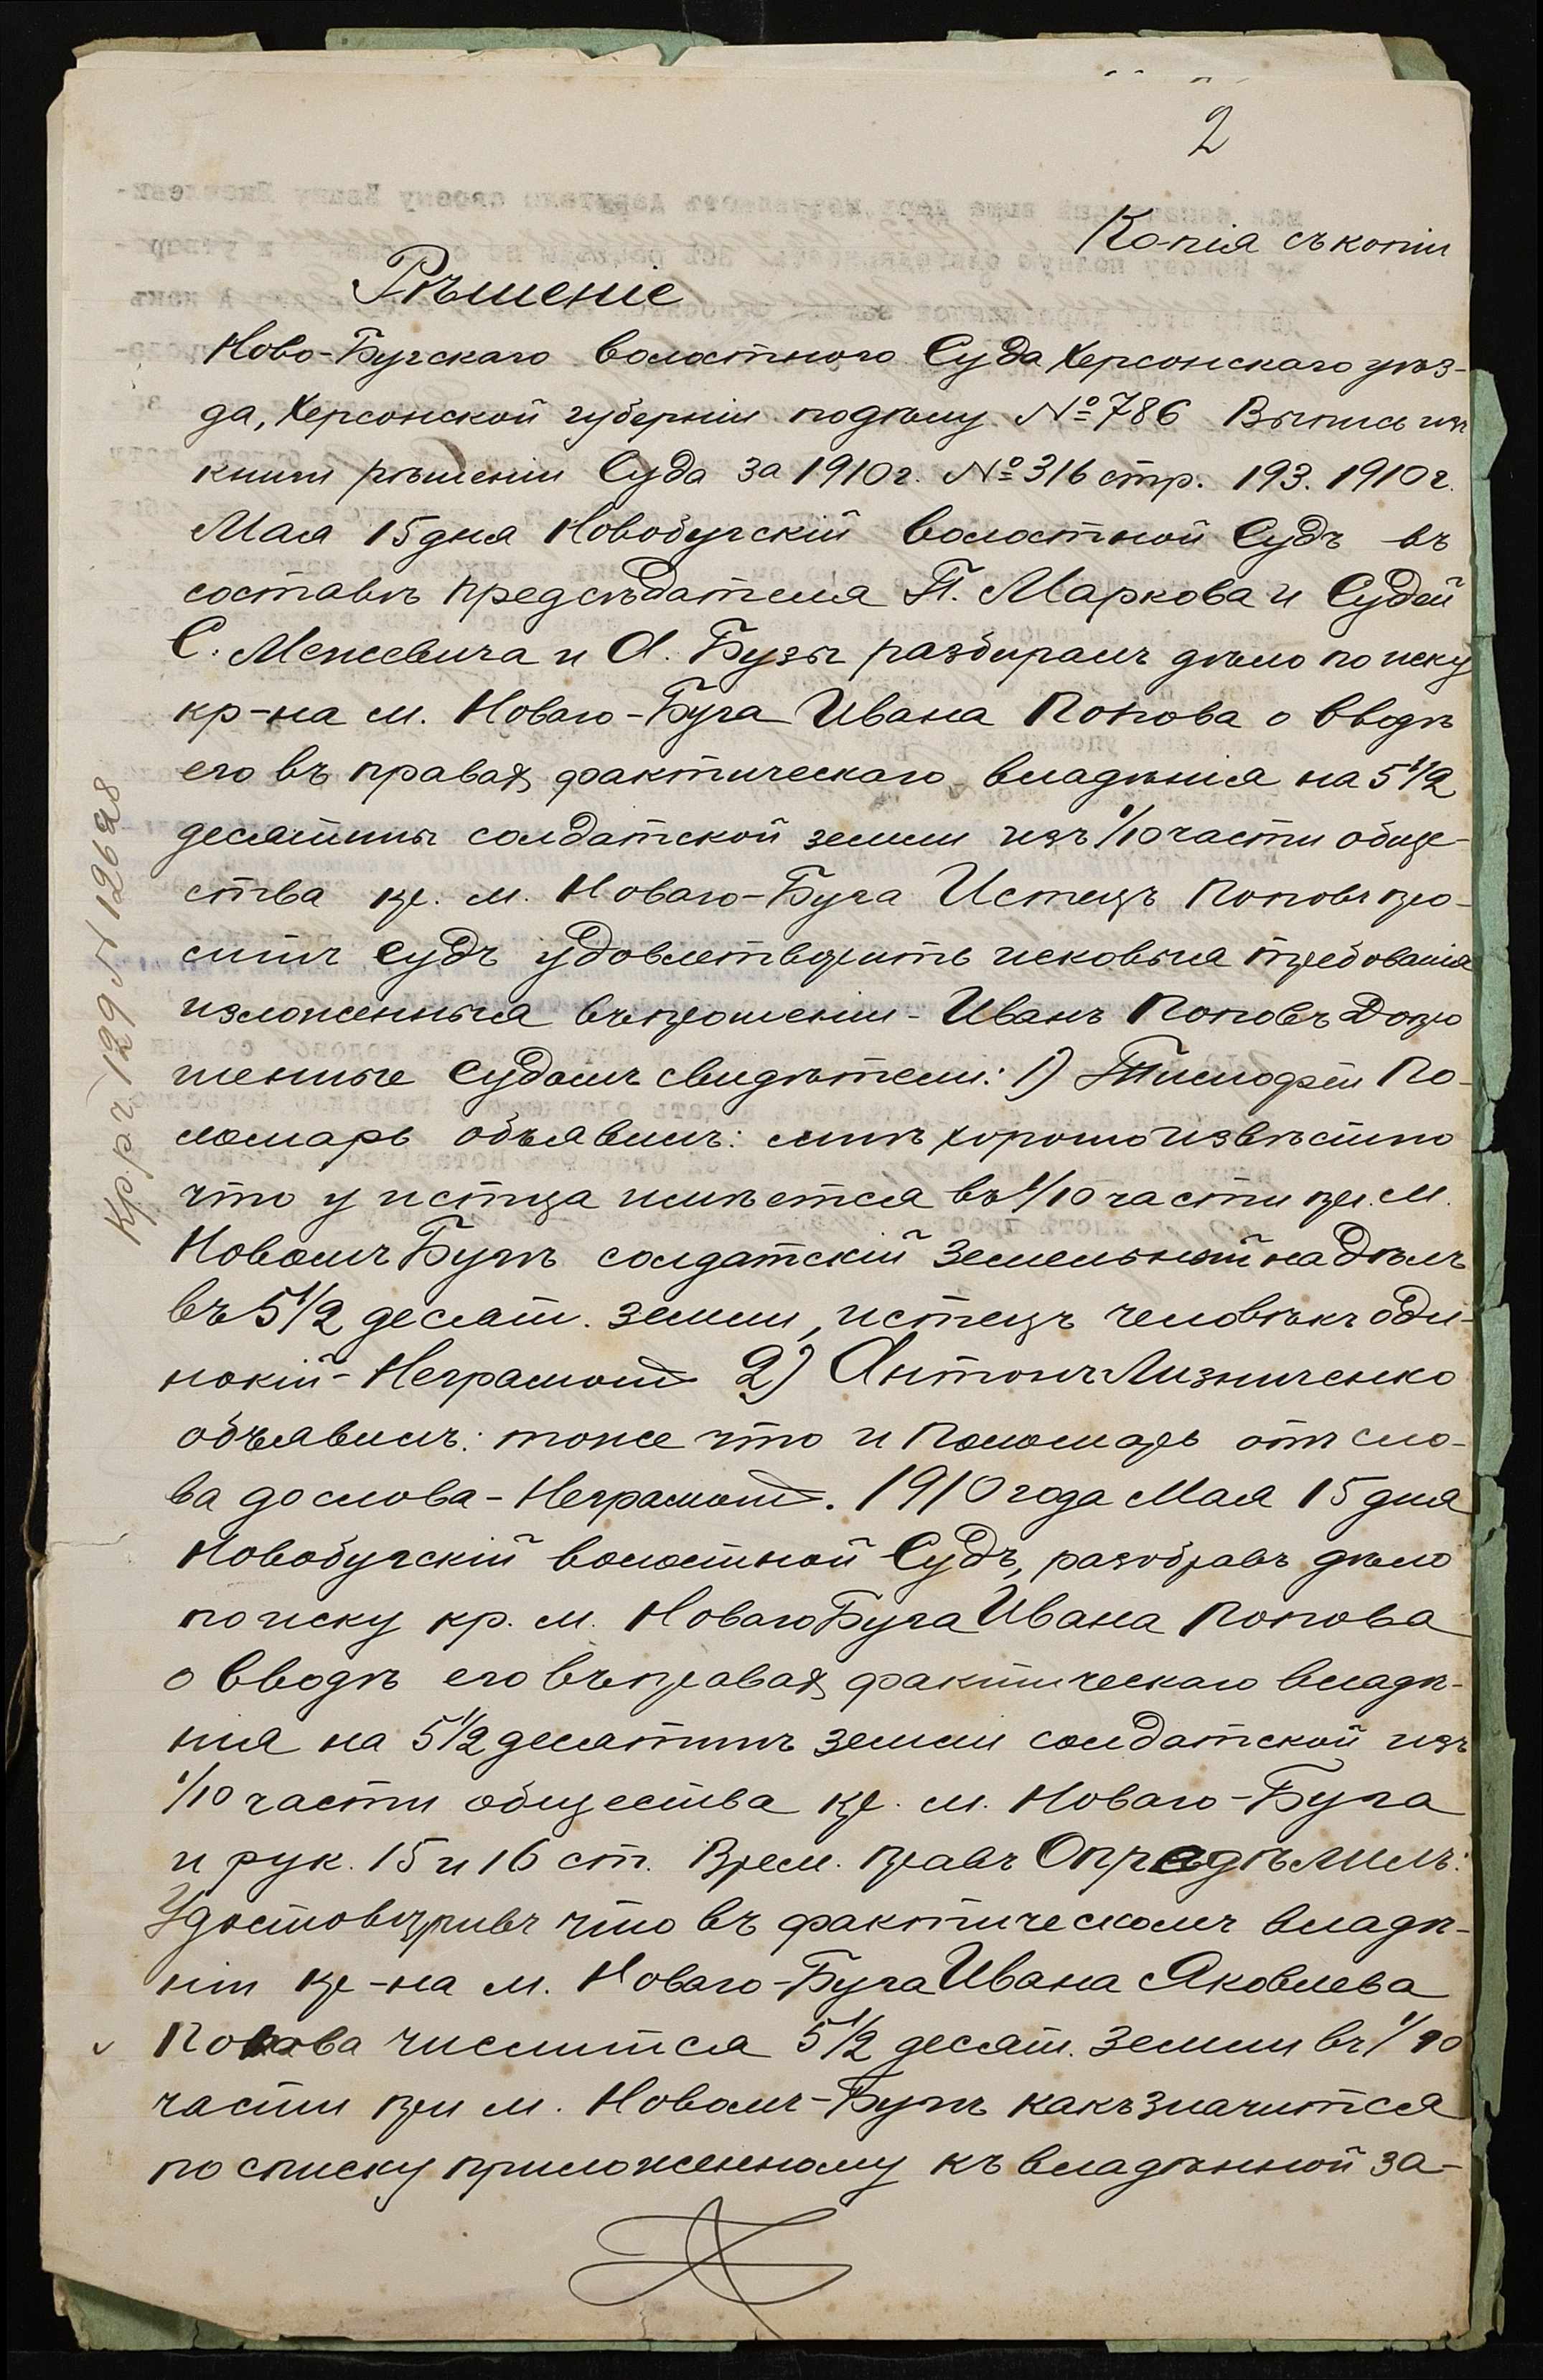 2
Копія съ копіи
Рѣшеніе
Ново-Бугскаго волостного Суда Херсонскаго уѣз-
да, Херсонской губерніи по дѣлу №786 Выпись изъ
книги рѣшеніи Суда за 1910 г. №316 стр. 193. 1910 г.
Мая 15 дня Новобугскій волостной Судъ въ
составѣ предсѣдателя П. Маркова и Судей
С. Менсевича и А. Бузы разбиралъ дѣло по иску
кр-на м. Новаго-Буга Ивана Попова о вводѣ
его въ правах фактическаго владѣнія на 5 1/2
десятины солдатской земли изъ 1/10 части обще-
ства кр. м. Новаго-Буга Истецъ Поповъ про-
ситъ Судъ удовлетворить исковыя требованія
изложенныя въ прошеніи - Иванъ Поповъ Допро
шенные Судомъ свидѣтели: 1) Тимофей По-
ломарь объявилъ: мнѣ хорошо извѣстно
что у истца имѣется въ 1/10 части при м.
Новомъ Бугѣ солдатскій земельный надѣлъ
въ 5 1/2 десят. земли, истецъ человѣкъ оди-
нокій - Неграмот 2) Антонъ Лизниченко
объявилъ: тоже что и Поломарь отъ сло-
ва до слова - Неграмот. 1910 года Мая 15 дня
Новобугскій волостной Судъ, разобравъ дѣло
по иску кр. м. Новаго Буга Ивана Попова
о вводѣ его въ правах фактическаго владѣ-
нія на 5 1/2 десятинъ земли солдатской изъ
1/10 части общества кр. м. Новаго-Буга
и рук. 15 и 16 ст. Врем. прав Опредѣлилъ:
Удостовѣривъ что въ фактическомъ владѣ-
ніи кр-на м. Новаго-Буга Ивана Яковлева
Попова числится 5 1/2 десят. земли въ 1/10
части при м. Новомъ-Бугѣ какъ значится
по списку приложенному къ владѣнной за-
129 № 12628